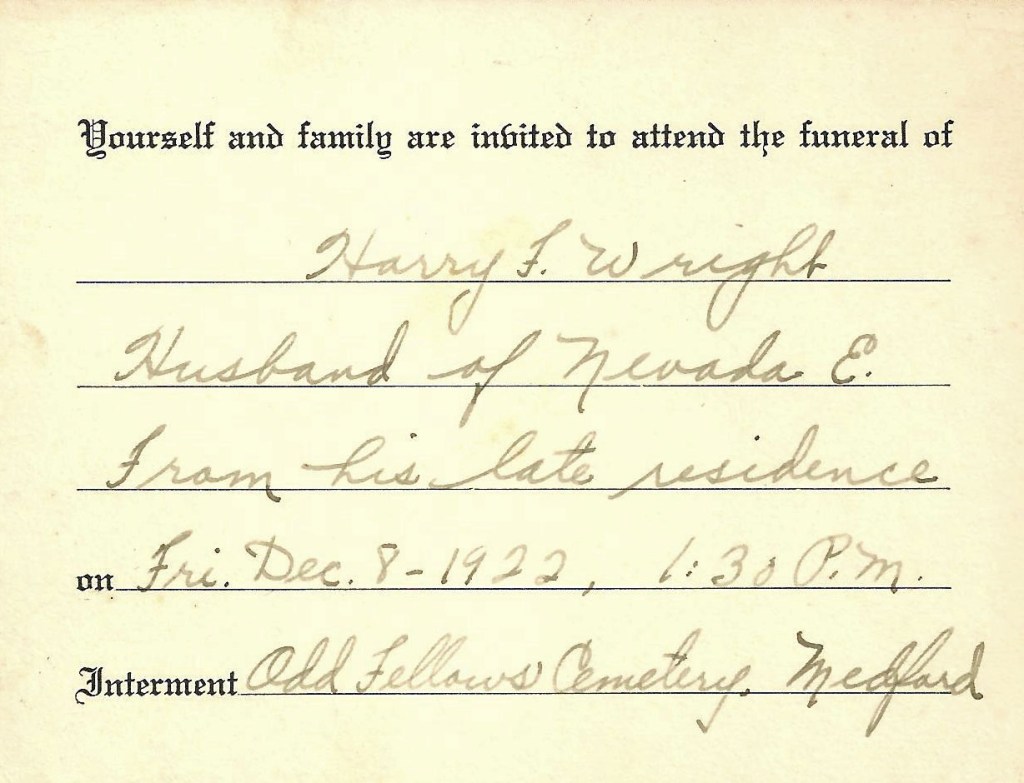 Yourself and family are invited to attend the funeral of
Harry F. Wright
Husband of Nevada E.
From his late residence
on Fri. Dec. 8 - 1922, 1:30 P.M.
Interment Odd Fellows Cemetery. Medford